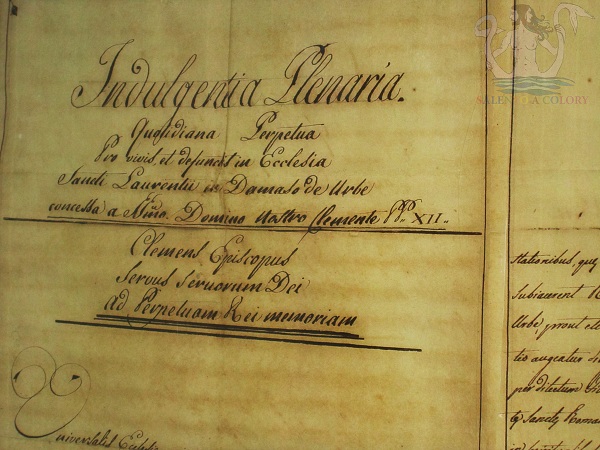 Indulgentia Plenaria.
Quotidiana Perpetua
Pro vivis, et defunctis in Ecclesia
Sancti Laurentii in Damaso de Urbe
concessa a Domino Nostro Clemente PPP. XII..
Clemens Episcopus
Servus Servorum Dei
Ad Perpetuam Rei memoriam
universalis Eccle
stationibus, que
subiacerent
Urbe, prout
tio augeatur
per
Sancte Roma
SALENTO A COLORY